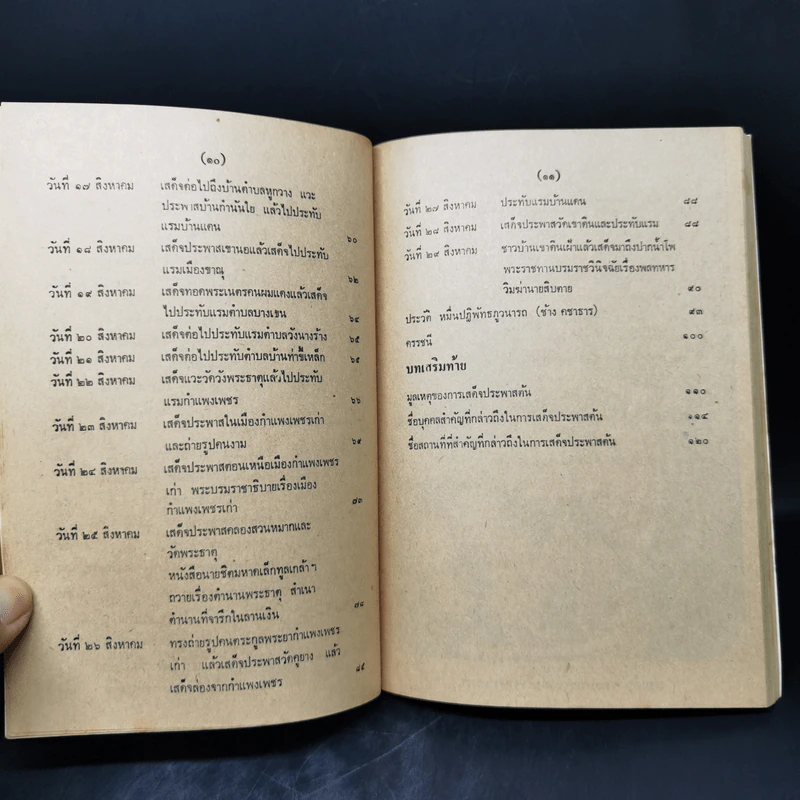 (๑๐)
วันที่ ๑๗ สิงหาคม เสด็จต่อไปถึงบ้านตำบลหูกวาง แวะ
ประพาสบ้านกำนันใย แล้วไปประทับ
แรมบ้านแดน ๖๐
วันที่ ๑๘ สิงหาคม เสด็จประพาสเขานอแล้วเสด็จไปประทับ
แรมเมืองขาณุ ๖๒
วันที่ ๑๙ สิงหาคม เสด็จทอดพระเนตรคนผมแดงแล้วเสด็จ
ไปประทับแรมตำบลบางแขม ๖๔
วันที่ ๒๐ สิงหาคม เสด็จต่อไปประทับแรมตำบลวังนางร้าง ๖๕
วันที่ ๒๑ สิงหาคม เสด็จต่อไปประทับตำบลบ้านท่าขี้เหล็ก ๖๕
วันที่ ๒๒ สิงหาคม เสด็จแวะวัดวังพระธาตุแล้วไปประทับ
แรมกำแพงเพชร ๖๖
วันที่ ๒๓ สิงหาคม เสด็จประพาสในเมืองกำแพงเพชรเก่า
และถ่ายรูปคนงาม ๖๙
วันที่ ๒๔ สิงหาคม เสด็จประพาสตอนเหนือเมืองกำแพงเพชร
เก่า พระบรมราชาธิบายเรื่องเมือง
กำแพงเพชรเก่า ๗๓
วันที่ ๒๕ สิงหาคม เสด็จประพาสคลองสวนหมากและ
วัดพระธาตุ
หนังสือนายชิดมหาดเล็กทูลเกล้าฯ
ถวายเรื่องตำนานพระธาตุ สำเนา
ตำนานที่จารึกในลานเงิน
วันที่ ๒๖ สิงหาคม ทรงถ่ายรูปคนตระกูลพระยากำแพงเพชร
เก่า แล้วเสด็จประพาสวัดคูยาง แล้ว
เสด็จล่องจากกำแพงเพชร ๘๕
(๑๑)
วันที่ ๒๗ สิงหาคม ประทับแรมบ้านแดน ๘๘
วันที่ ๒๘ สิงหาคม เสด็จประพาสวัดเขาดินและประทับแรม ๘๘
วันที่ ๒๙ สิงหาคม ชาวบ้านเขาดินเฝ้าแล้วเสด็จมาถึงปากน้ำโพ
พระราชทานบรมราชวินิจฉัยเรื่องพลทหาร
วิมฆ่านายสิบตาย ๙๐
ประวัติ หมื่นปฏิพัทธภูวนารถ (ช้าง คชาธาร) ๙๓
ดรรชนี ๑๐๐
บทเสริมท้าย
มูลเหตุของการเสด็จประพาสต้น ๑๑๐
ชื่อบุคคลสำคัญที่กล่าวถึงในการเสด็จประพาสต้น ๑๑๔
ชื่อสถานที่ที่สำคัญที่กล่าวถึงในการเสด็จประพาสต้น ๑๒๐